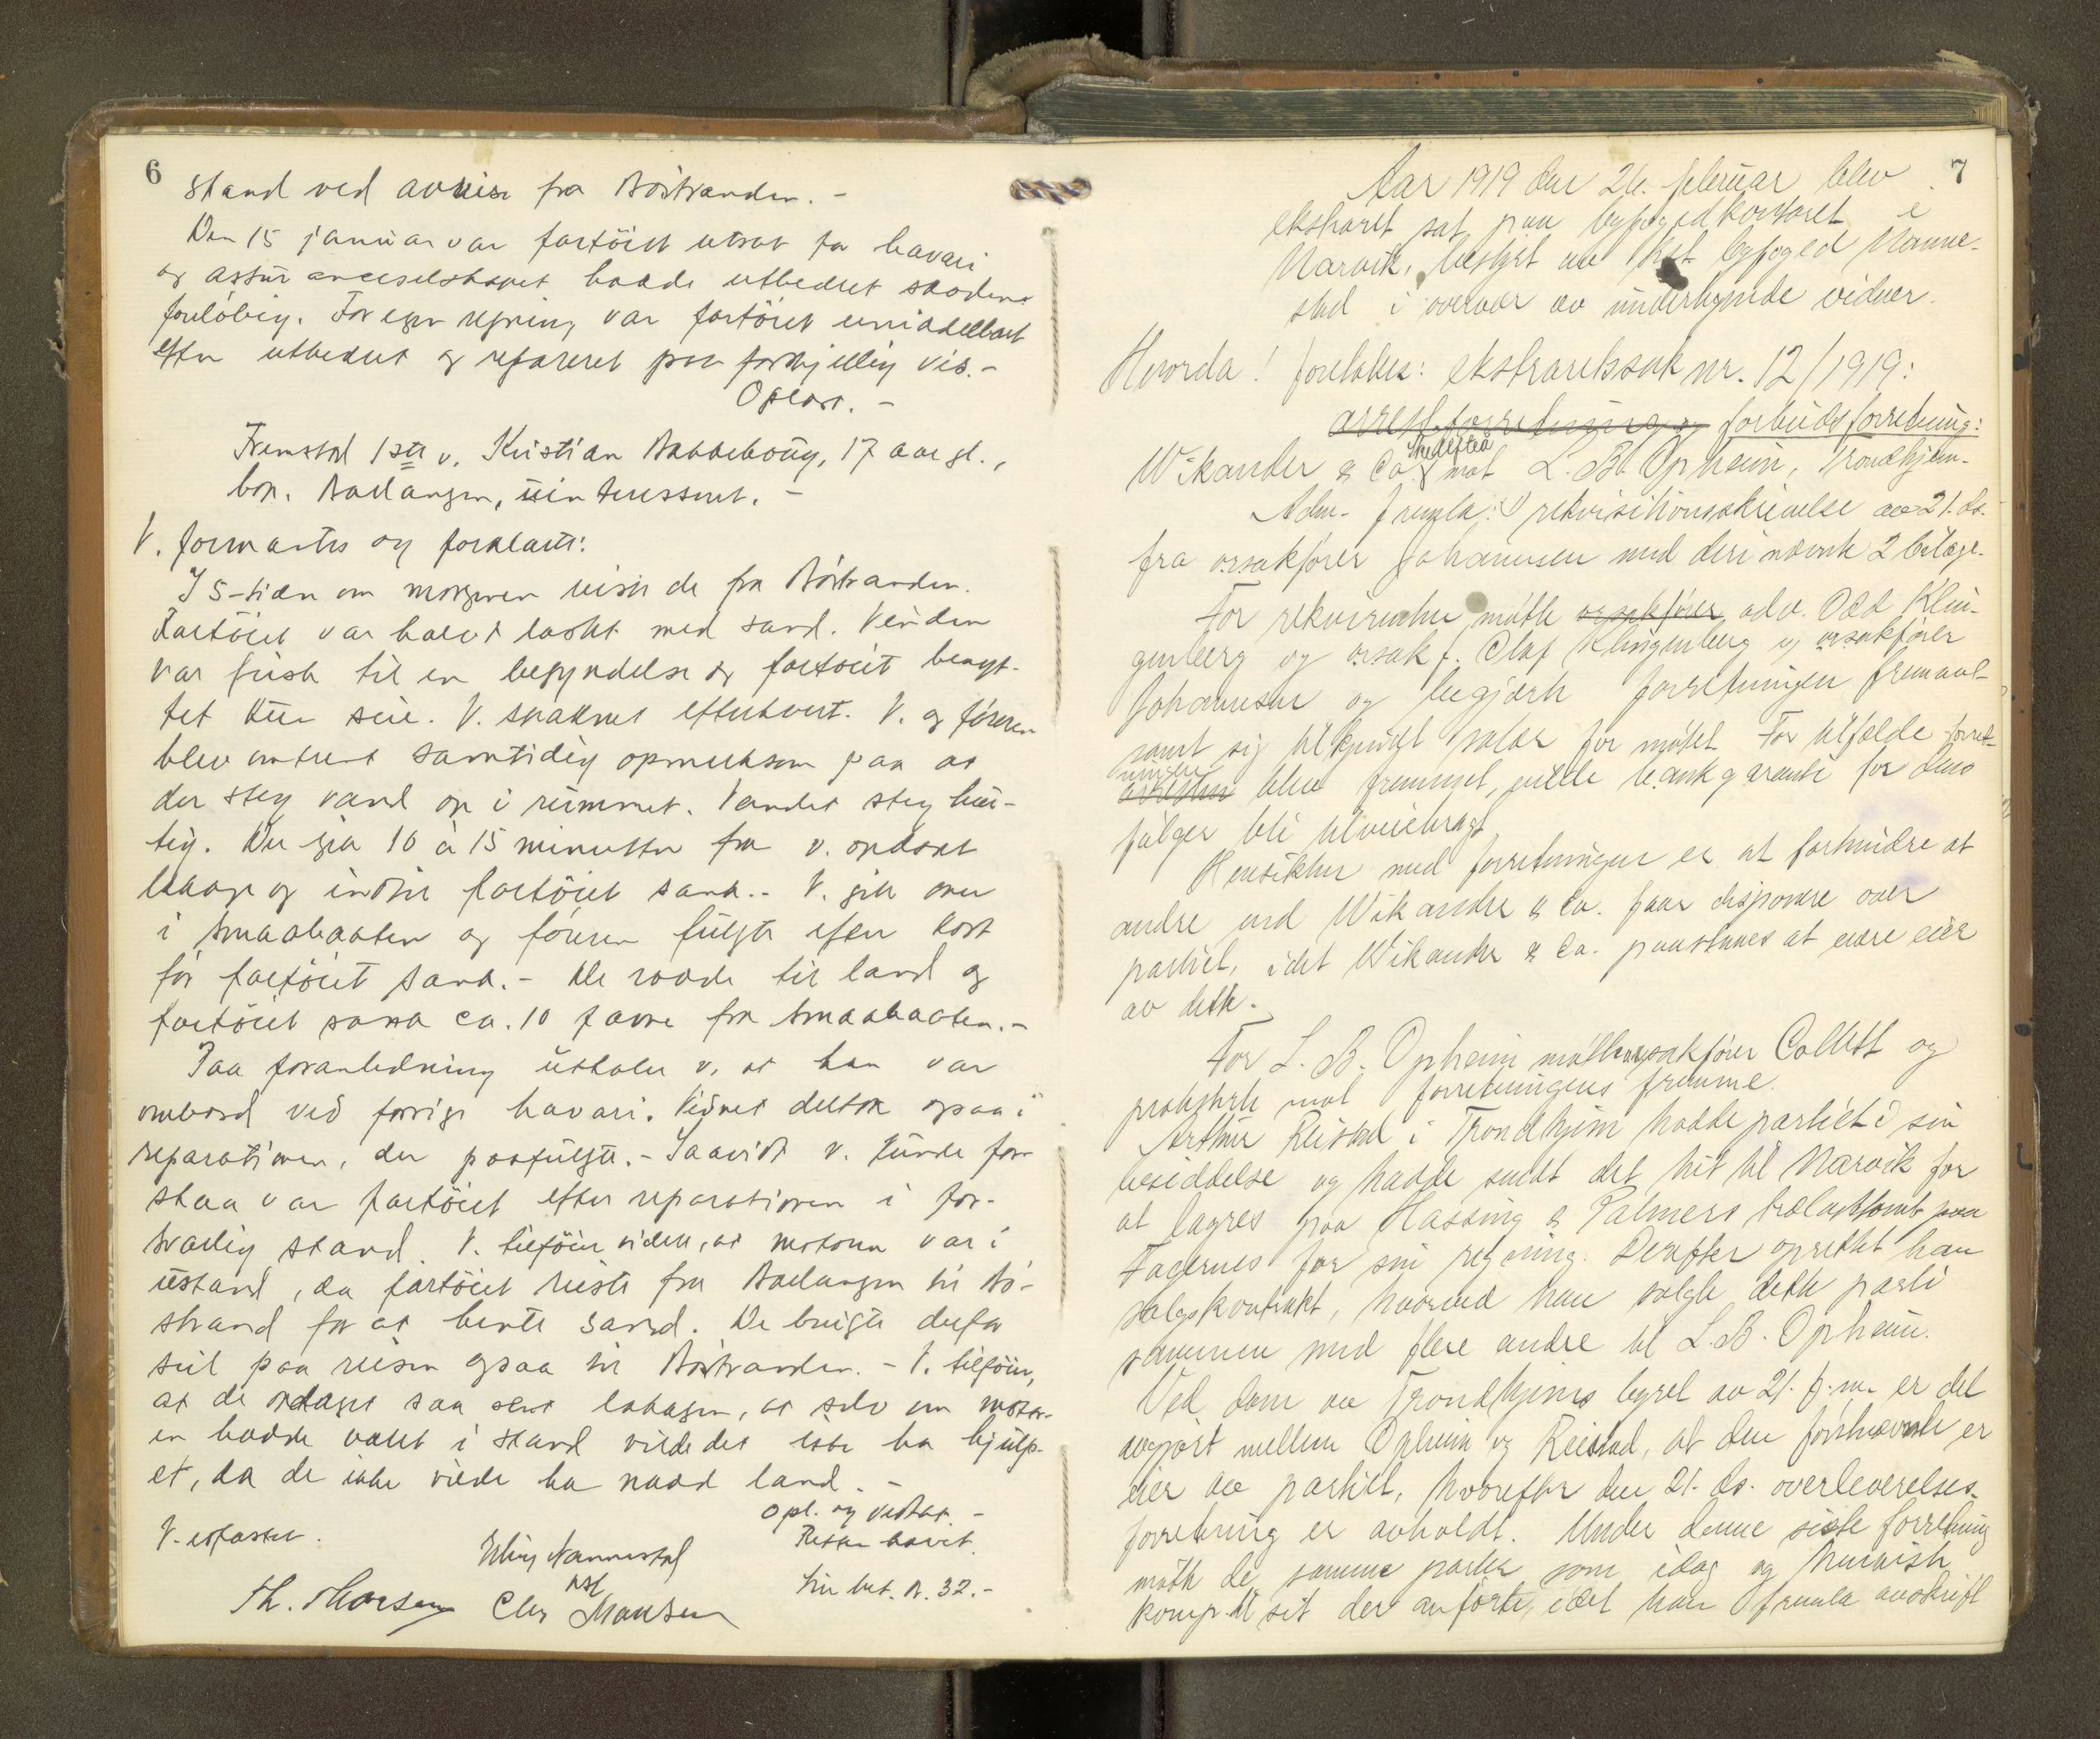 6
stand ved avreise fra Böstranden. -
Den 15 januar var fartöiet utsat for havari
og assuranceselskapet hadde utbedret skaden
foreløbig. For egen regning var fartöiet umiddelbart
efter utbedret og reparert paa forskjellig vis. -
Oplæst. -
Fremstod 1ste v. Kristian, 17 aar gl.,
bop. Ballangen, uinteressert. -
V. formantes og forklarte:
I 5-tiden om morgenen reiste de fra Böstranden.
Fartöiet var halvt lastet med sand. Vinden
var frisk til en begyndelse og fartöiet benyt-
tet kun seil. V. svaknet efterhvert. V. og föreren
blev omtrent samtidig opmerksom paa at
der steg vand op i rummet. Vandet steg hur-
tig. Der gik 10 à 15 minutter fra v. opdaget
lækage og indtil fartöiet sank. - V. gik over
i smaabaaten og föreren fulgte efter kort
för fartöiet sank. - De rodde til land og
fartöiet sank ca. 10 favne fra smaabaaten. -
Paa foranledning uttaler v. at han var
ombord ved forrige havari. Vidnet deltok ogsaa i
reparationen, der paafulgte. - Saavidt v. kunde for-
staa var fartöiet efter reparationen i for-
svarlig stand. V. tilföier videre, at motoren var i
ustand, da fartöiet reiste fra Ballangen til Bö-
strand for at hente sand. De brugte derfor
seil paa reisen ogsaa til Böstranden. - V. tilföier,
at de opdaget saa sent lekagen, at selv om motor-
en hadde været i stand vilde det ikke ha hjulp-
et, da de ikke vilde ha naadd land. -
Opl. og vedtat. -
V. edfæstet.
Retten hævet.
Nannestad
kst
Th. Thorsen Chr Hansen
Se bet. A. 32. -
7
Aar 1919 den 26. februar blev
ekstraret sat paa byfogedkontoret i
Narvik, bestyret av kst byfoged Nanne-
stad i overvær av undertegnede vidner.
Hvorda! foretokes: ekstraretssak nr. 12/1919:
arrestforretning og forbudsforretning:
Wikander & Co. Skellefteå mot L. B. Opheim, Trondhjem.
Adm. fremla: 1) rekvisitionsskrivelse av 21. ds.
fra o.r.sakfører Johannesen med deri nævnte 2 bilage.
For rekvirenten møtte orsakfører adv. Odd Klin-
genberg og orsakf. Olaf Klingenberg og orsakfører
Johannesen og begjærte forretningen fremmet
samt sig tilkjendt salær for møtet. For tilfælde forret-
ningen arresten blev fremmet, vilde bankgaranti for dens
følger bli tilveiebragt.
Hensikten med forretningen er at forhindre at
andre end Wikander & Co. faar disponere over
partiet, idet Wikander & Co. paastaaes at være eier
av dette.
For L. B. Opheim møtte orsakfører Collett og
protesterte mot forretningens fremme.
Arthur Reistad i Trondhjem hadde partiet i sin
besiddelse og hadde sendt det hit til Narvik for
at lagres paa Hassing & Palmers trælasttomt paa
Fagernes for sin regning. Derefter oprettet han
salgskontrakt, hvorved han solgte dette parti
sammen med flere andre til L. B. Opheim.
Ved dom av Trondhjems byret av 21. f. m. er det
avgjort mellem Opheim og Reistad, at den førstnævnte er
eier av partiet, hvorefter den 21. ds. overleverelses-
forretning er avholdt. Under denne siste forretning
møtte de samme parter som idag og henviste
komp. til sit der anførte, idet han fremla avskrift